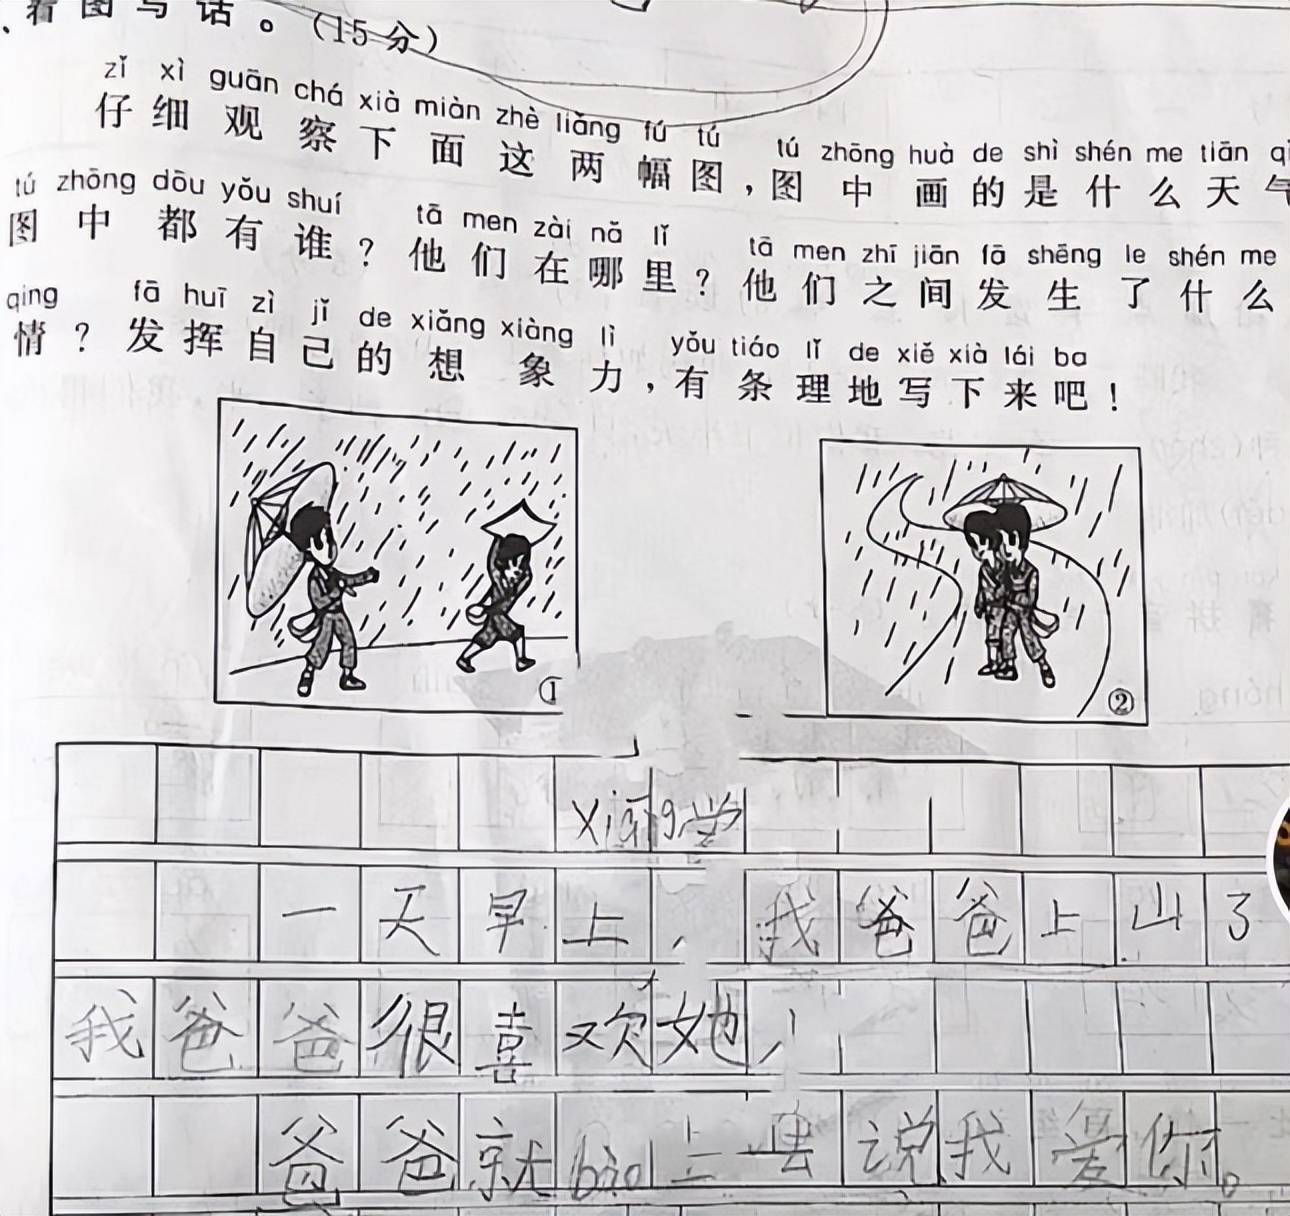 、看图写话。(15分)
zǐ xì guān chá xià miàn zhè liǎng fú tú tú zhōng huà de shì shén me tiān qì
仔细观察下面这两幅图,图中画的是什么天气
tú zhōng dōu yǒu shuí tā men zài nǎ lǐ tā men zhī jiān fā shēng le shén me
图中都有谁?他们在哪里?他们之间发生了什么
qing fā huī zì jǐ de xiǎng xiàng lì yǒu tiáo lǐ de xiě xià lái ba
情?发挥自己的想象力,有条理地写下来吧!
①
②
xiāng学
一天早上,我爸爸上山了
我爸爸很喜欢她,
爸爸就bào上去说我爱你。